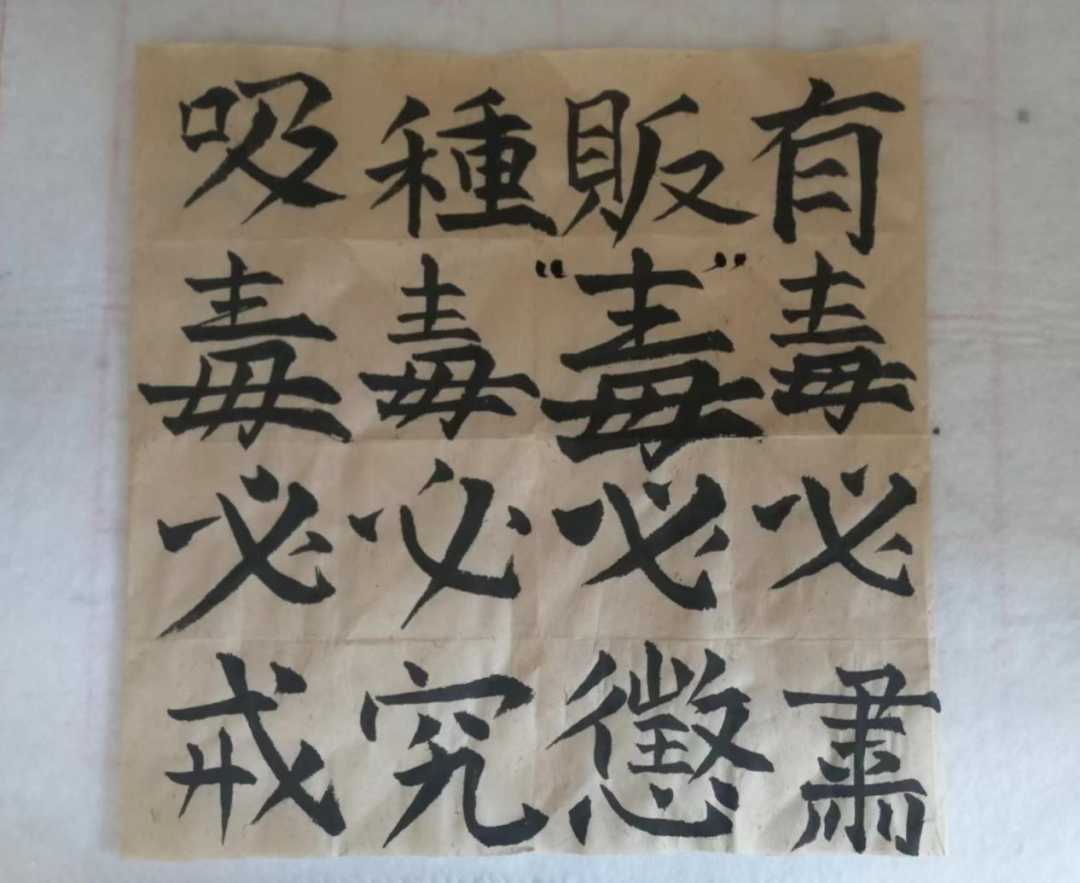 有毒必肅
販“毒”必懲
種毒必究
吸毒必戒